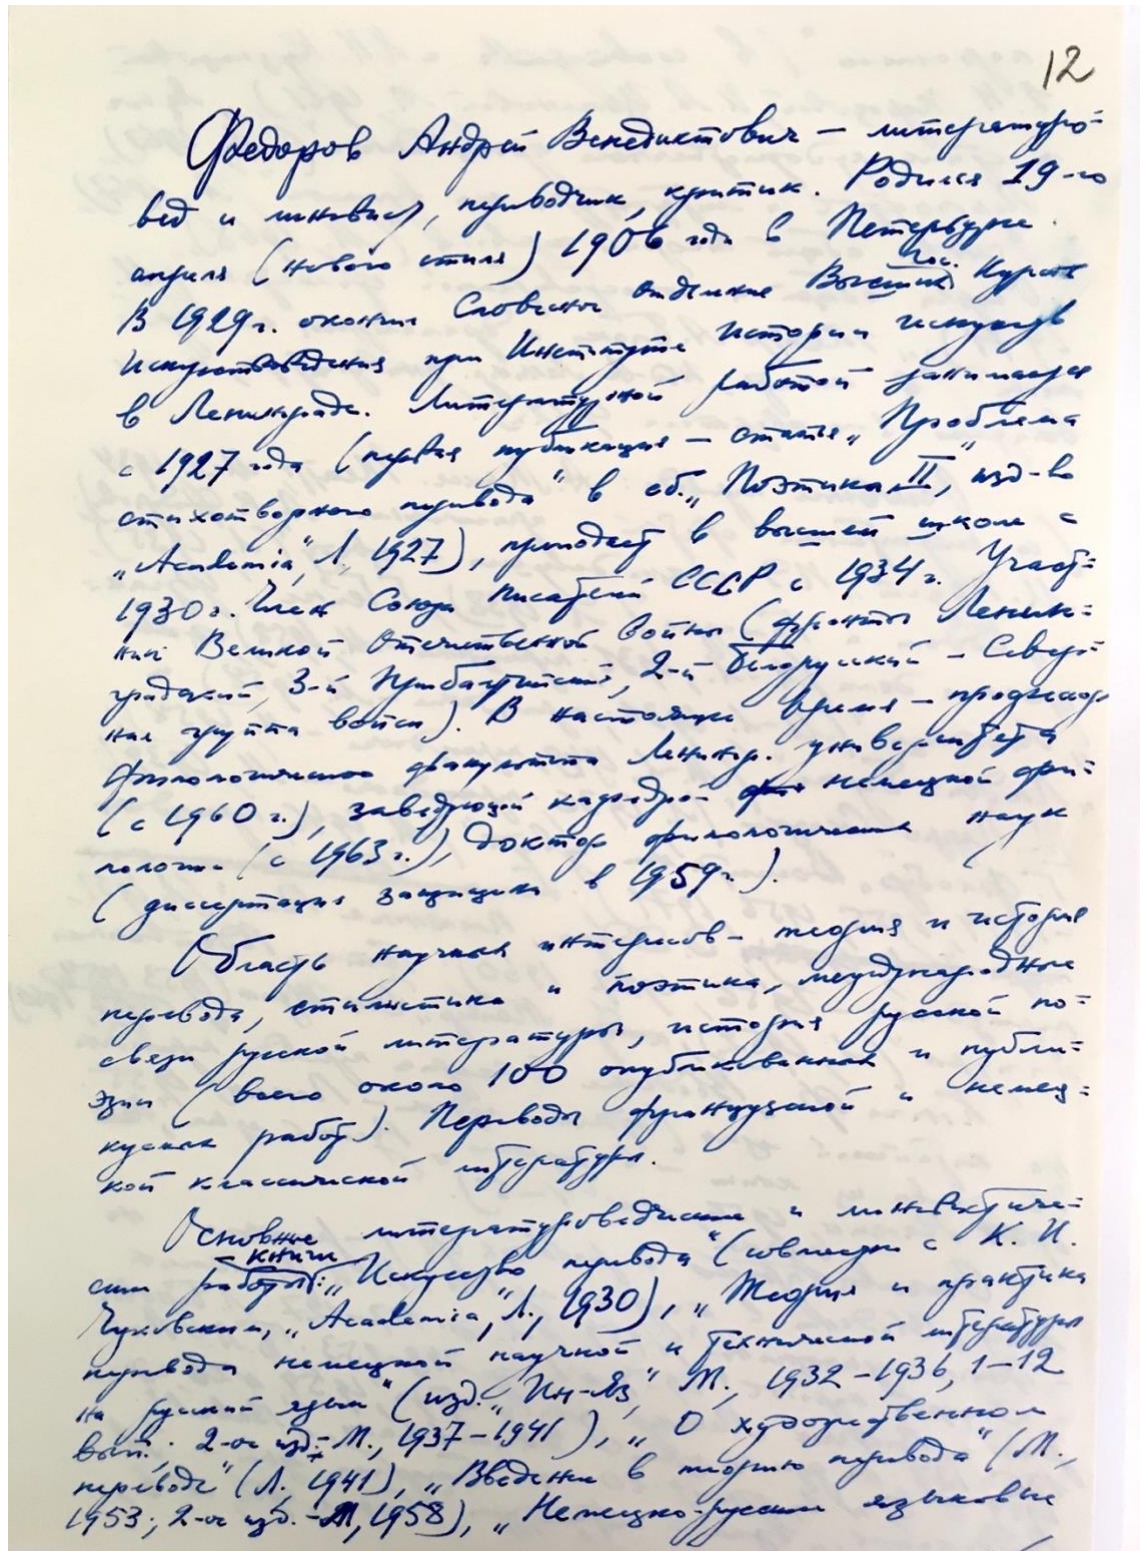 12
Федоров Андрей Венедиктович — литературо-
вед и лингвист, переводчик, критик. Родился 19-го
апреля (нового стиля) 1906 года в Петербурге.
В 1929 г. окончил Словесное отделение Высших Гос. Курсов
Искусствоведения при Институте истории искусств
в Ленинграде. Литературной работой занимается
с 1927 года (первая публикация — статья „Проблема
стихотворного перевода“ в сб. „Поэтика II“, изд-во
„Academia“, Л., 1927), преподает в высшей школе с
1930 г. Член Союза писателей СССР с 1934 г. Участ=
ник Великой Отечественной Войны (фронты Ленин=
градский, 3-й Прибалтийский, 2-й Белорусский – Север=
ная группа войск). В настоящее время – профессор
филологического факультета Ленингр. университета
(с 1960 г.), заведующий кафедрой немецкой фи=
лологии (с 1963 г.), доктор филологических наук
(диссертация защищена в 1959 г.).
Область научных интересов – теория и история
перевода, стилистика и поэтика, международные
связи русской литературы, история русской по=
эзии (всего около 100 опубликованных и публи=
куемых работ). Переводы французской и немец=
кой классической литературы.
Основные литературоведческие и лингвистиче=
ские работы: книги „Искусство перевода“ (совместно с К. И.
Чуковским, „Academia“, Л., 1930), „Теория и практика
перевода немецкой научной и технической литературы
на русский язык“ (изд. „Ин-Яз“, М., 1932–1936, 1–12
вып.; 2-ое изд. – М., 1937–1941), „О художественном
переводе“ (Л. 1941), „Введение в теорию перевода“ (М.,
1953; 2-ое изд. – М, 1958), „Немецко-русские языковые